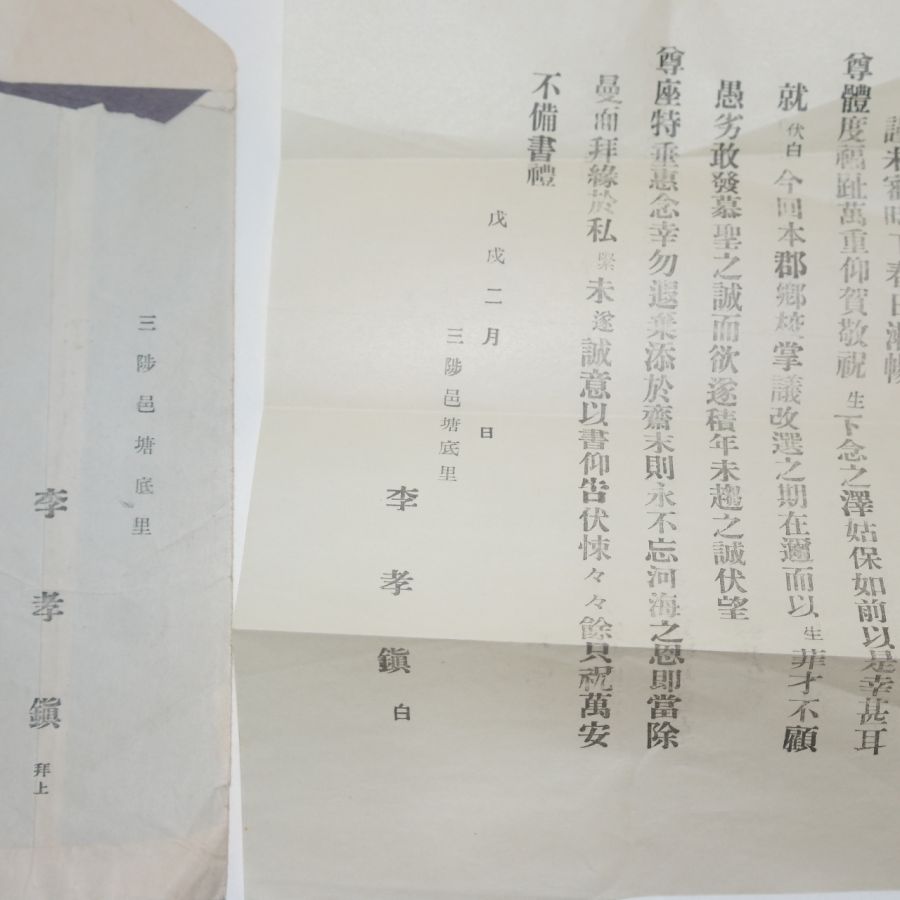 未審時下春日漸暢
尊體度福趾萬重仰賀敬祝 生 下念之澤姑保如前以是幸甚耳
就 伏白 今回本郡鄕校掌議改選之期在邇而以 生 菲才不顧
愚劣敢發慕聖之誠而欲遂積年未趨之誠伏望
尊座特垂惠念幸勿遐棄添於齋末則永不忘河海之恩卽當除
曼面拜緣於私緊未遂誠意以書仰告伏悚々々餘只祝萬安
不備書禮
戊戌二月 日
三陟邑塘底里
李孝鎭 白
三陟邑塘底里
李孝鎭 拜上